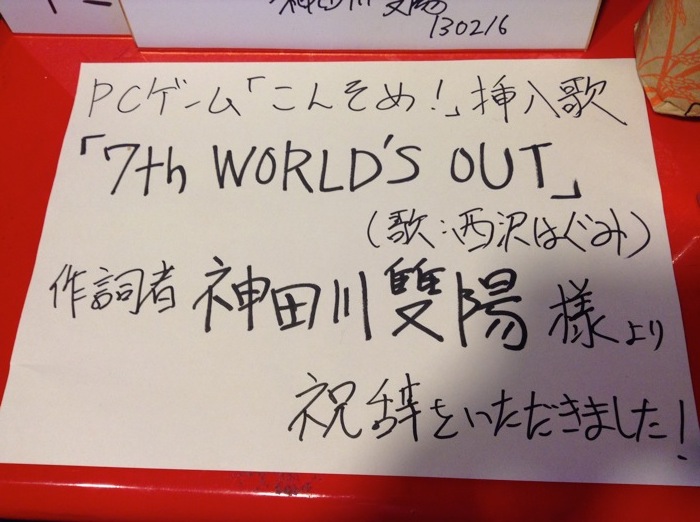 神田川雙陽
130216
PCゲーム「こんそめ!」挿入歌
「7th WORLD'S OUT」
(歌:西沢はぐみ)
作詞者 神田川雙陽 様より
祝辞をいただきました!